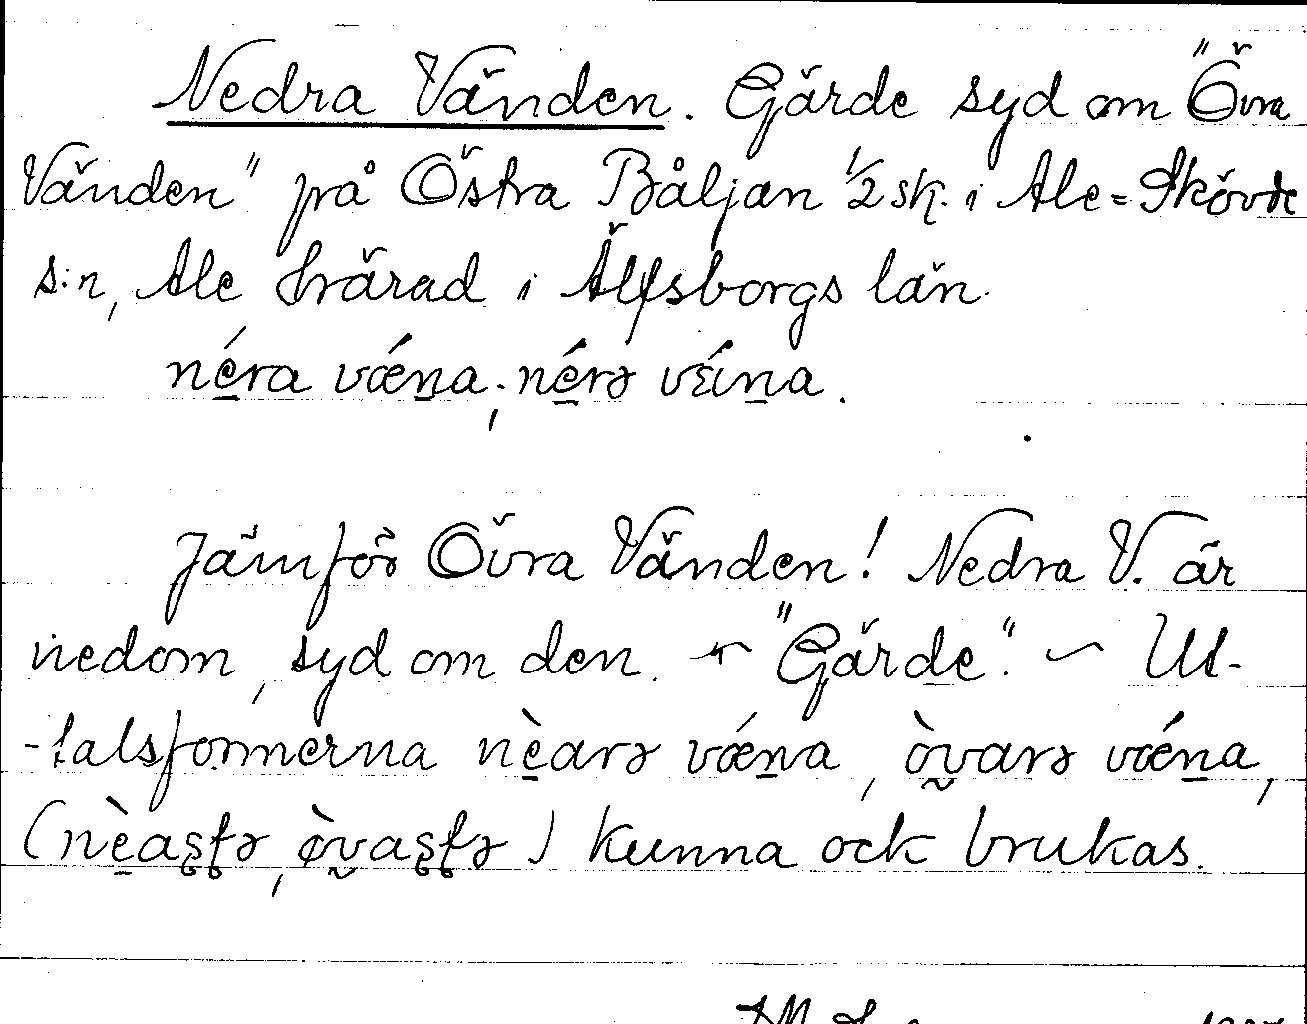 Nedra Vänden. Gärde syd om "Övra
Vänden" på Östra Båljan 1/2 sk. i Ale=Skövde
s:n, Ale härad i Älfsborgs län.
néra vǽna; nérə vɛ́ina.
Jämför Övra Vänden! Nedra V. är
nedom, syd om den. ~ "Gärde". ~ Ut-
-talsformerna nèarə vǽna, ø̀varə vǽna,
(nèaʂʈə, ø̀vaʂʈə) kunna ock brukas.